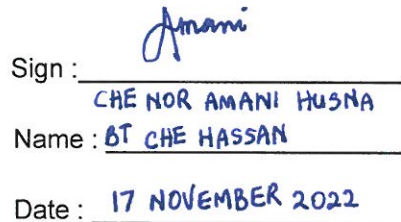 Amani
Sign :
CHE NOR AMANI HUSNA
Name : BT CHE HASSAN
Date : 17 NOVEMBER 2022